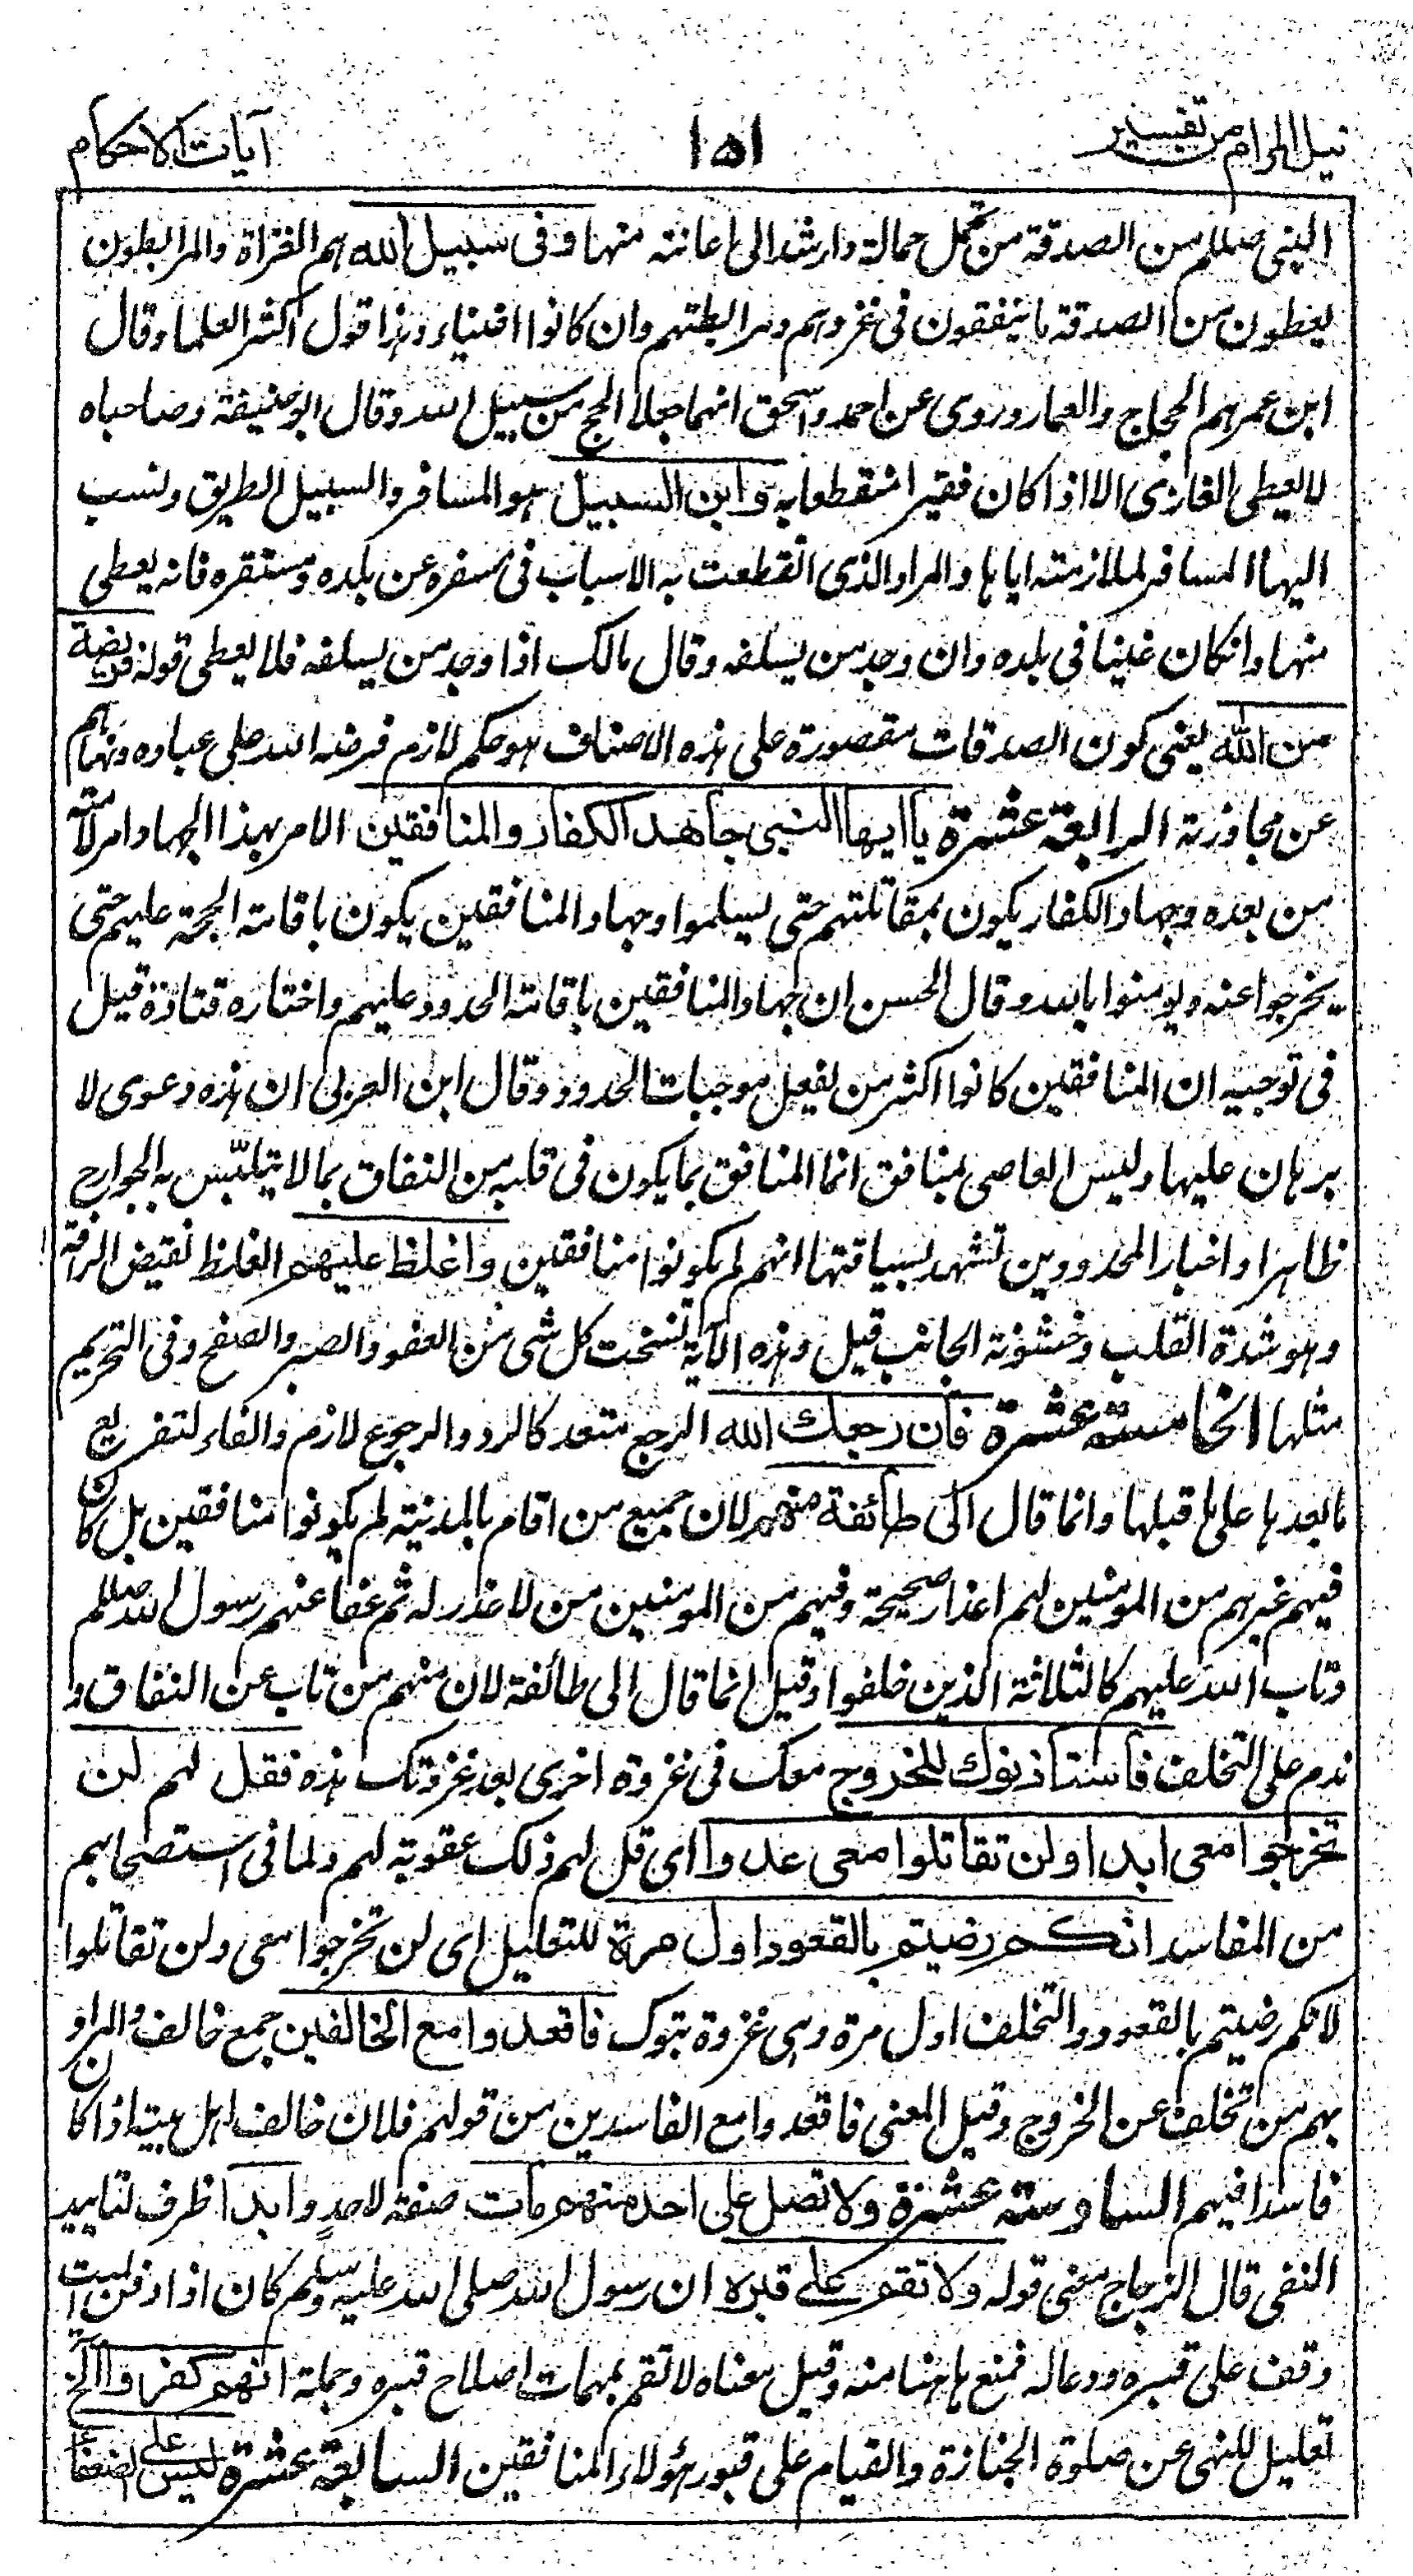 نيل المرام من تفسير
١٥١
آيات الاحكام
النبي صللم من الصدقة من تحمل حمالة وارشد الى اعانته منها وفى سبيل الله هم الغزاة والمرابطون
يعطون من الصدقة ما ينفقون فى غزوهم ومرابطتهم وان كانوا اغنياء وهذا قول اكثر العلما وقال
ابن عمر هم الحجاج والعمار وروى عن احمد واسحق انهما جعلا الحج من سبيل الله وقال ابو حنيفة وصاحباه
لا يعطى الغازى الا اذا كان فقيرا منقطعا به وابن السبيل هو المسافر والسبيل الطريق ونسب
اليها المسافر لملازمته اياها والمراد الذى انقطعت به الاسباب فى سفره عن بلده ومستقره فانه يعطى
منها وانكان غنيا فى بلده وان وجد من يسلفه وقال مالك اذا وجد من يسلفه فلا يعطى قوله فريضة
من الله يعنى كون الصدقات مقصورة على هذه الاصناف هو حكم لازم فرضه الله على عباده ونهاهم
عن مجاوزته الرابعة عشرة يا ايها النبى جاهد الكفار والمنافقين الامر بهذا الجهاد امر لامته
من بعده وجهاد الكفار يكون بمقاتلتهم حتى يسلموا وجهاد المنافقين يكون باقامة الحجة عليهم حتى
يخرجوا عنه ويومنوا بالله وقال الحسن ان جهاد المنافقين باقامة الحدود عليهم واختاره قتادة قيل
فى توجيه ان المنافقين كانوا اكثر من يفعل موجبات الحدود وقال ابن العربى ان هذه دعوى لا
برهان عليها وليس العاصى بمنافق انما المنافق بما يكون فى قلبه من النفاق بما لا يتلبّس به الجوارح
ظاهرا واخبار المحدودين تشهد بسياقتها انهم لم يكونوا منافقين واغلظ عليهم الغلظ نقيض الرافة
وهو شدة القلب وخشونة الجانب قيل وهذه الآية نسخت كل شئ من العفو والصبر والصفح وفى التحريم
مثلها الخامسة عشرة فان رجعك الله الرجع متعد كالرد والرجوع لازم والفاء لتفريع
ما بعدها على ما قبلها وانما قال الى طائفة منهم لان جميع من اقام بالمدينة لم يكونوا منافقين بل كان
فيهم غيرهم من المومنين لهم اعذار صحيحة وفيهم من المومنين من لا عذر له ثم عفا عنهم رسول الله صللم
وتاب الله عليهم كالثلاثة الذين خلفوا وقيل انما قال الى طائفة لان منهم من تاب عن النفاق و
ندم على التخلف فاستاذنوك للخروج معك فى غزوة اخرى بعد غزوتك هذه فقل لهم لن
تخرجوا معى ابدا ولن تقاتلوا معى عدوا اى قل لهم ذلك عقوبة لهم ولما فى استصحابهم
من المفاسد انكم رضيتم بالقعود اول مرة للتعليل اى لن تخرجوا معى ولن تقاتلوا
لانكم رضيتم بالقعود والتخلف اول مرة وهى غزوة تبوك فاقعدوا مع الخالفين جمع خالف والمراد
بهم من تخلف عن الخروج وقيل المعنى فاقعدوا مع الفاسدين من قولهم فلان خالف اهل بيته اذا كان
فاسدا فيهم السادسة عشرة ولا تصل على احد منهم مات صفة لاحدٍ وابدا ظرف لتابيد
النفى قال الزجاج معنى قوله ولا تقم على قبره ان رسول الله صلى الله عليه وسلم كان اذا دفن الميت
وقف على قبره ودعا له فمنع هاهنا منه وقيل معناه لا تقم بمهمات اصلاح قبره وجملة انهم كفروا الخ
تعليل للنهى عن صلوة الجنازة والقيام على قبور هؤلاء المنافقين السابعة عشرة ليس على الضعفاء